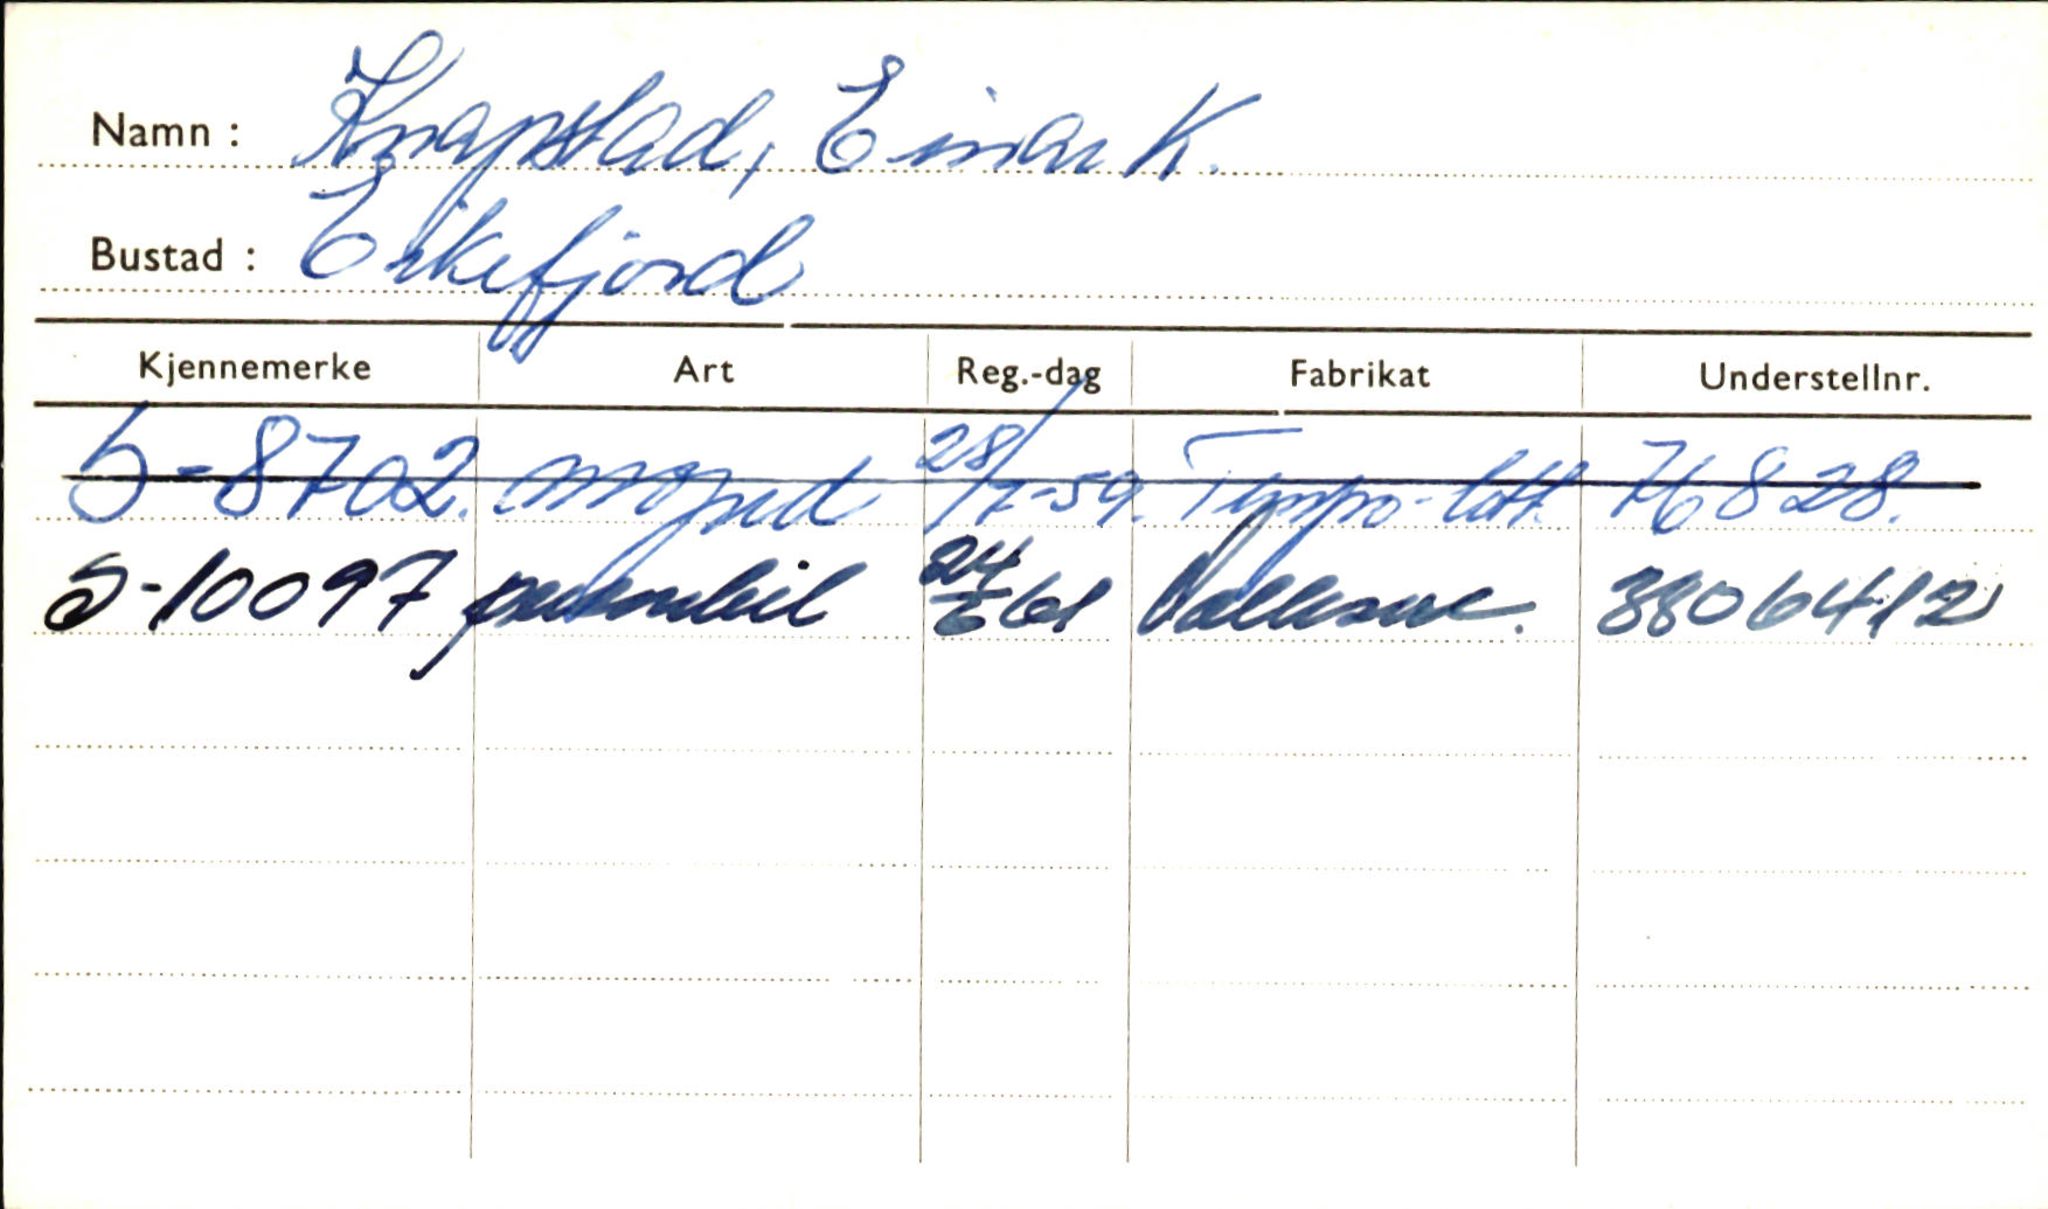 Namn : Knapstad, Einar K.
Bustad : Eikefjord
Kjennemerke Art Reg.-dag Fabrikat Understellnr.
S-8702. moped 28/7-59. Tempo-lett. 76828.
S-10097 personbil 24/6 61 Volksw. 3806412